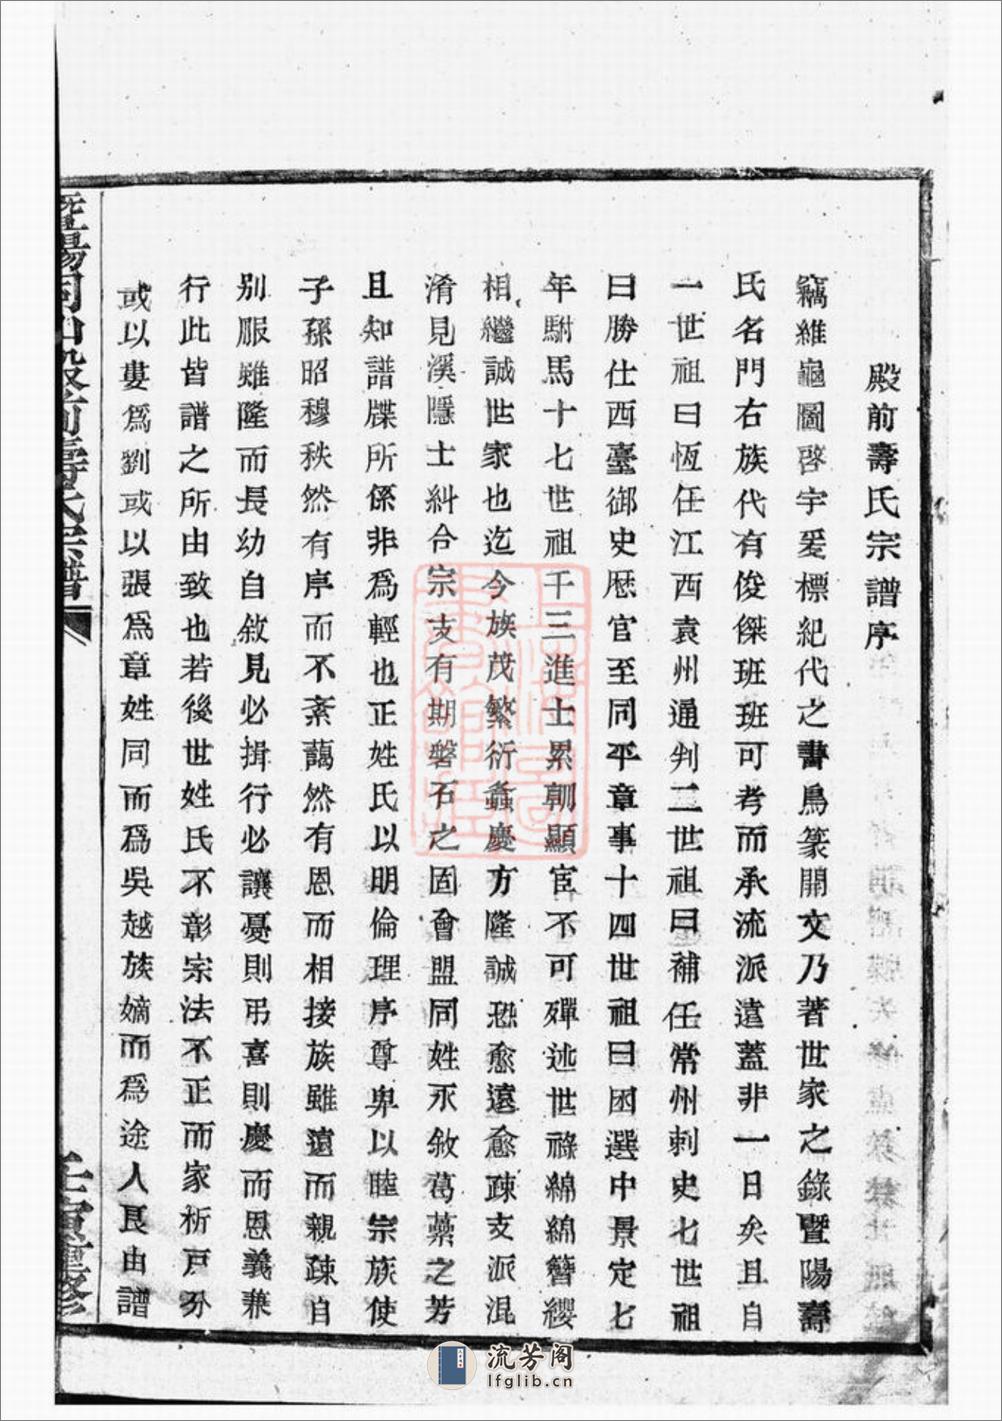 殿前壽氏宗譜序
竊維龜圖啓宇爰標紀代之書鳥篆開文乃著世家之錄暨陽壽
氏名門右族代有俊傑班班可考而承流派遠蓋非一日矣且自
一世祖曰恆任江西袁州通判二世祖曰補任常州刺史七世祖
曰勝仕西臺御史歷官至同平章事十四世祖曰困選中景定七
年駙馬十七世祖千三進士累朝顯宦不可殫述世祿綿綿簪纓
相繼誠世家也迄今族茂繁衍螽慶方隆誠恐愈遠愈疎支派混
淆見溪隱士糾合宗支有期磐石之固會盟同姓永敘葛藟之芳
且知譜牒所係非為輕也正姓氏以明倫理序尊卑以睦宗族使
子孫昭穆秩然有序而不紊藹然有恩而相接族雖遠而親疎自
別服雖隆而長幼自敘見必揖行必讓憂則弔喜則慶而恩義兼
行此皆譜之所由致也若後世姓氏不彰宗法不正而家析戶分
或以婁為劉或以張為章姓同而為吳越族嫡而為途人良由譜
暨陽同山殿前壽氏宗譜
壬寅重修
流芳阁
lfglib.cn